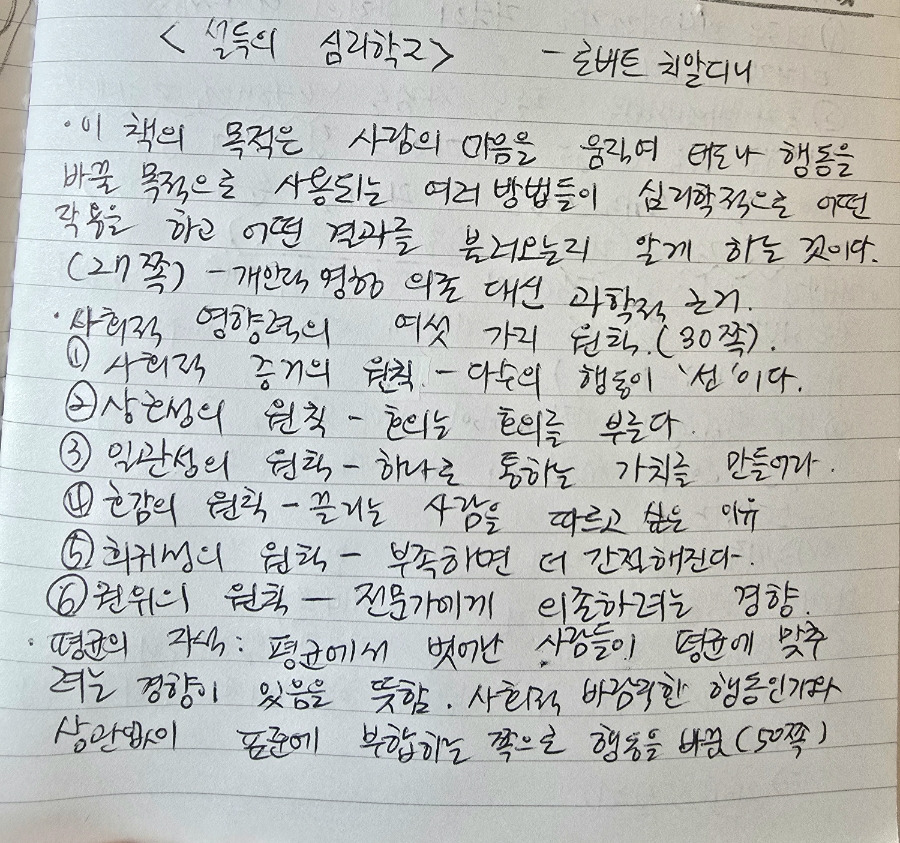 <설득의 심리학2> - 로버트 치알디니
· 이 책의 목적은 사람의 마음을 움직여 태도나 행동을
바꿀 목적으로 사용되는 여러 방법들이 심리학적으로 어떤
작용을 하고 어떤 결과를 불러오는지 알게 하는 것이다.
(27쪽) - 개인적 영향 의존 대신 과학적 근거.
· 사회적 영향력의 여섯 가지 원칙. (30쪽).
① 사회적 증거의 원칙 - 다수의 행동이 '선'이다.
② 상호성의 원칙 - 호의는 호의를 부른다.
③ 일관성의 원칙 - 하나로 통하는 가치를 만들어라.
④ 호감의 원칙 - 끌리는 사람을 따르고 싶은 이유
⑤ 희귀성의 원칙 - 부족하면 더 간절해진다.
⑥ 권위의 원칙 - 전문가에게 의존하려는 경향.
· 평균의 자석 : 평균에서 벗어난 사람들이 평균에 맞추
려는 경향이 있음을 뜻함. 사회적 바람직한 행동인가와
상관없이 표준에 부합하는 쪽으로 행동을 바꿈 (50쪽)